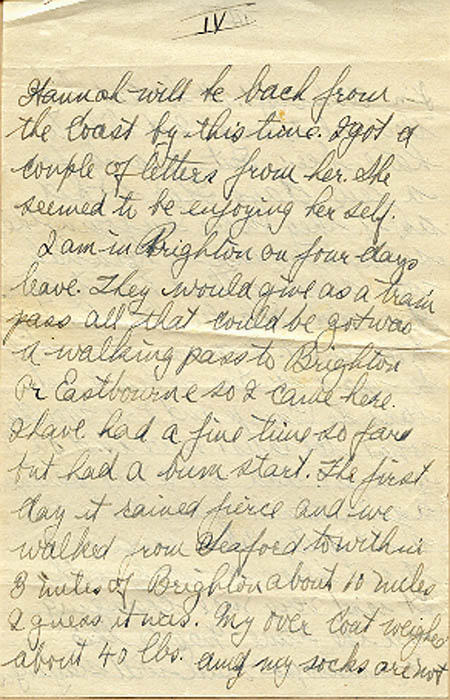 IV
Hannah will be back from
the Coast by this time. I got a
couple of letters from her. She
seemed to be enjoying her self.
I am in Brighton on four days
leave. They would give as a train
pass all that could be got was
a walking pass to Brighton
Or Eastbourne so I came here.
I have had a fine time so fare
but had a bum start. The first
day it rained fierce and we
walked from Seaford to within
3 miles of Brighton about 10 miles
I guess it was. My over Coat weighed
about 40 lbs. and my socks are not